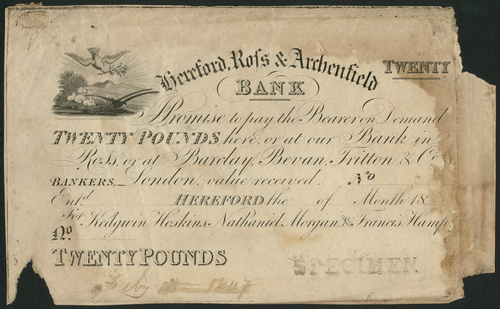 Hereford, Ross & Archenfield
BANK
TWENTY
I Promise to pay the Bearer on Demand
TWENTY POUNDS here, or at our Bank in
Ross, or at Barclay, Bevan, Tritton & Co
BANKERS, London, value received.
No
Ent.d HEREFORD the of Month 18
For Kedgwin Hoskins, Nathaniel Morgan & Francis Hamp
No
TWENTY POUNDS
SPECIMEN